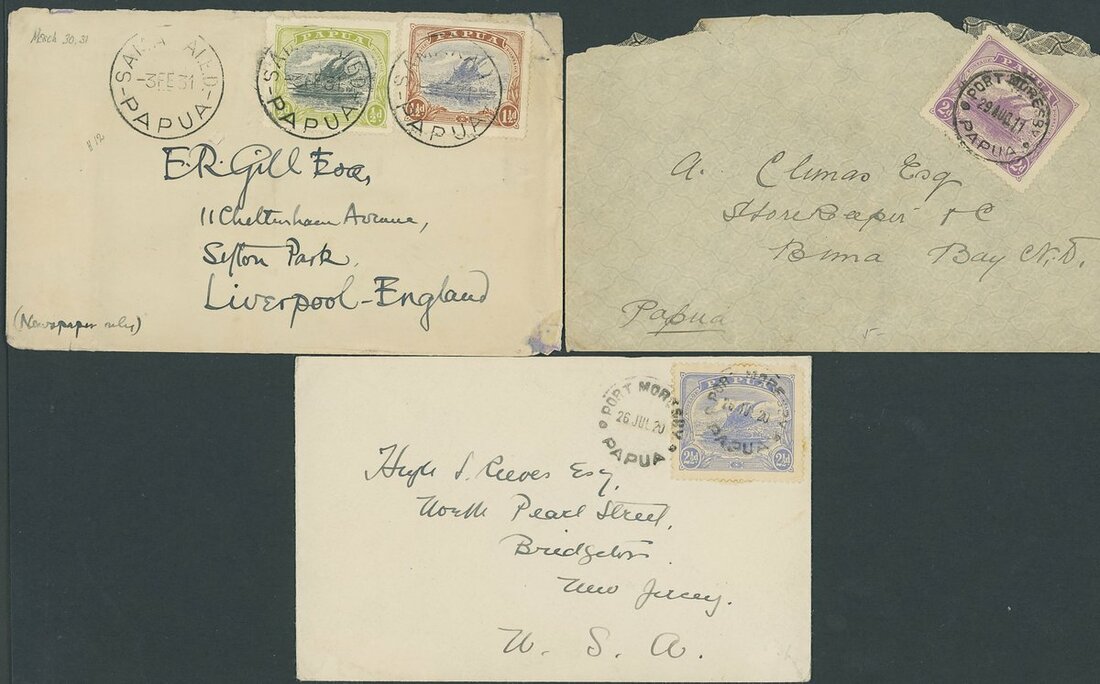 March 30, 31
SAMARAI
-3FE31
-PAPUA-
PAPUA
½d
PAPUA
1½d
PAPUA
E.R. Gill Esq,
11 Cheltenham Avenue,
Sefton Park,
Liverpool - England
(Newspaper only)
PAPUA
PORT MORESBY
29 AUG 11
PAPUA
A. Climas Esq
Storekeeper
Bay N.D.
Papua
PORT MORESBY
26 JUL 20
PAPUA
PAPUA
PORT MORESBY
26 JUL 20
PAPUA
2½d 2½d
Hugh S. Reeves Esq,
North Pearl Street,
Bridgeton
New Jersey.
U. S. A.